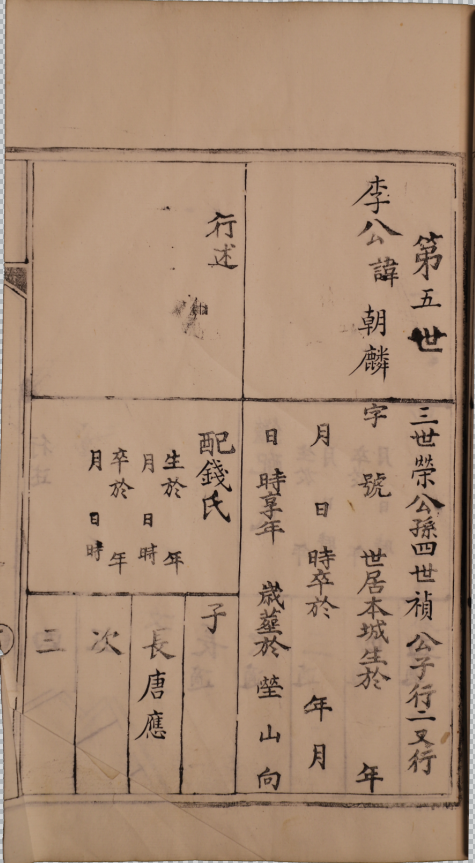 第五世
三世榮公孫四世禎公子行二又行
李公諱朝麟字 號 世居本城生於 年
月 日 時卒於 年 月
日 時享年 歲塟於 塋 山 向
行述
配錢氏
生於 年
月 日 時
卒於 年
月 日 時
子
長唐應
次
三